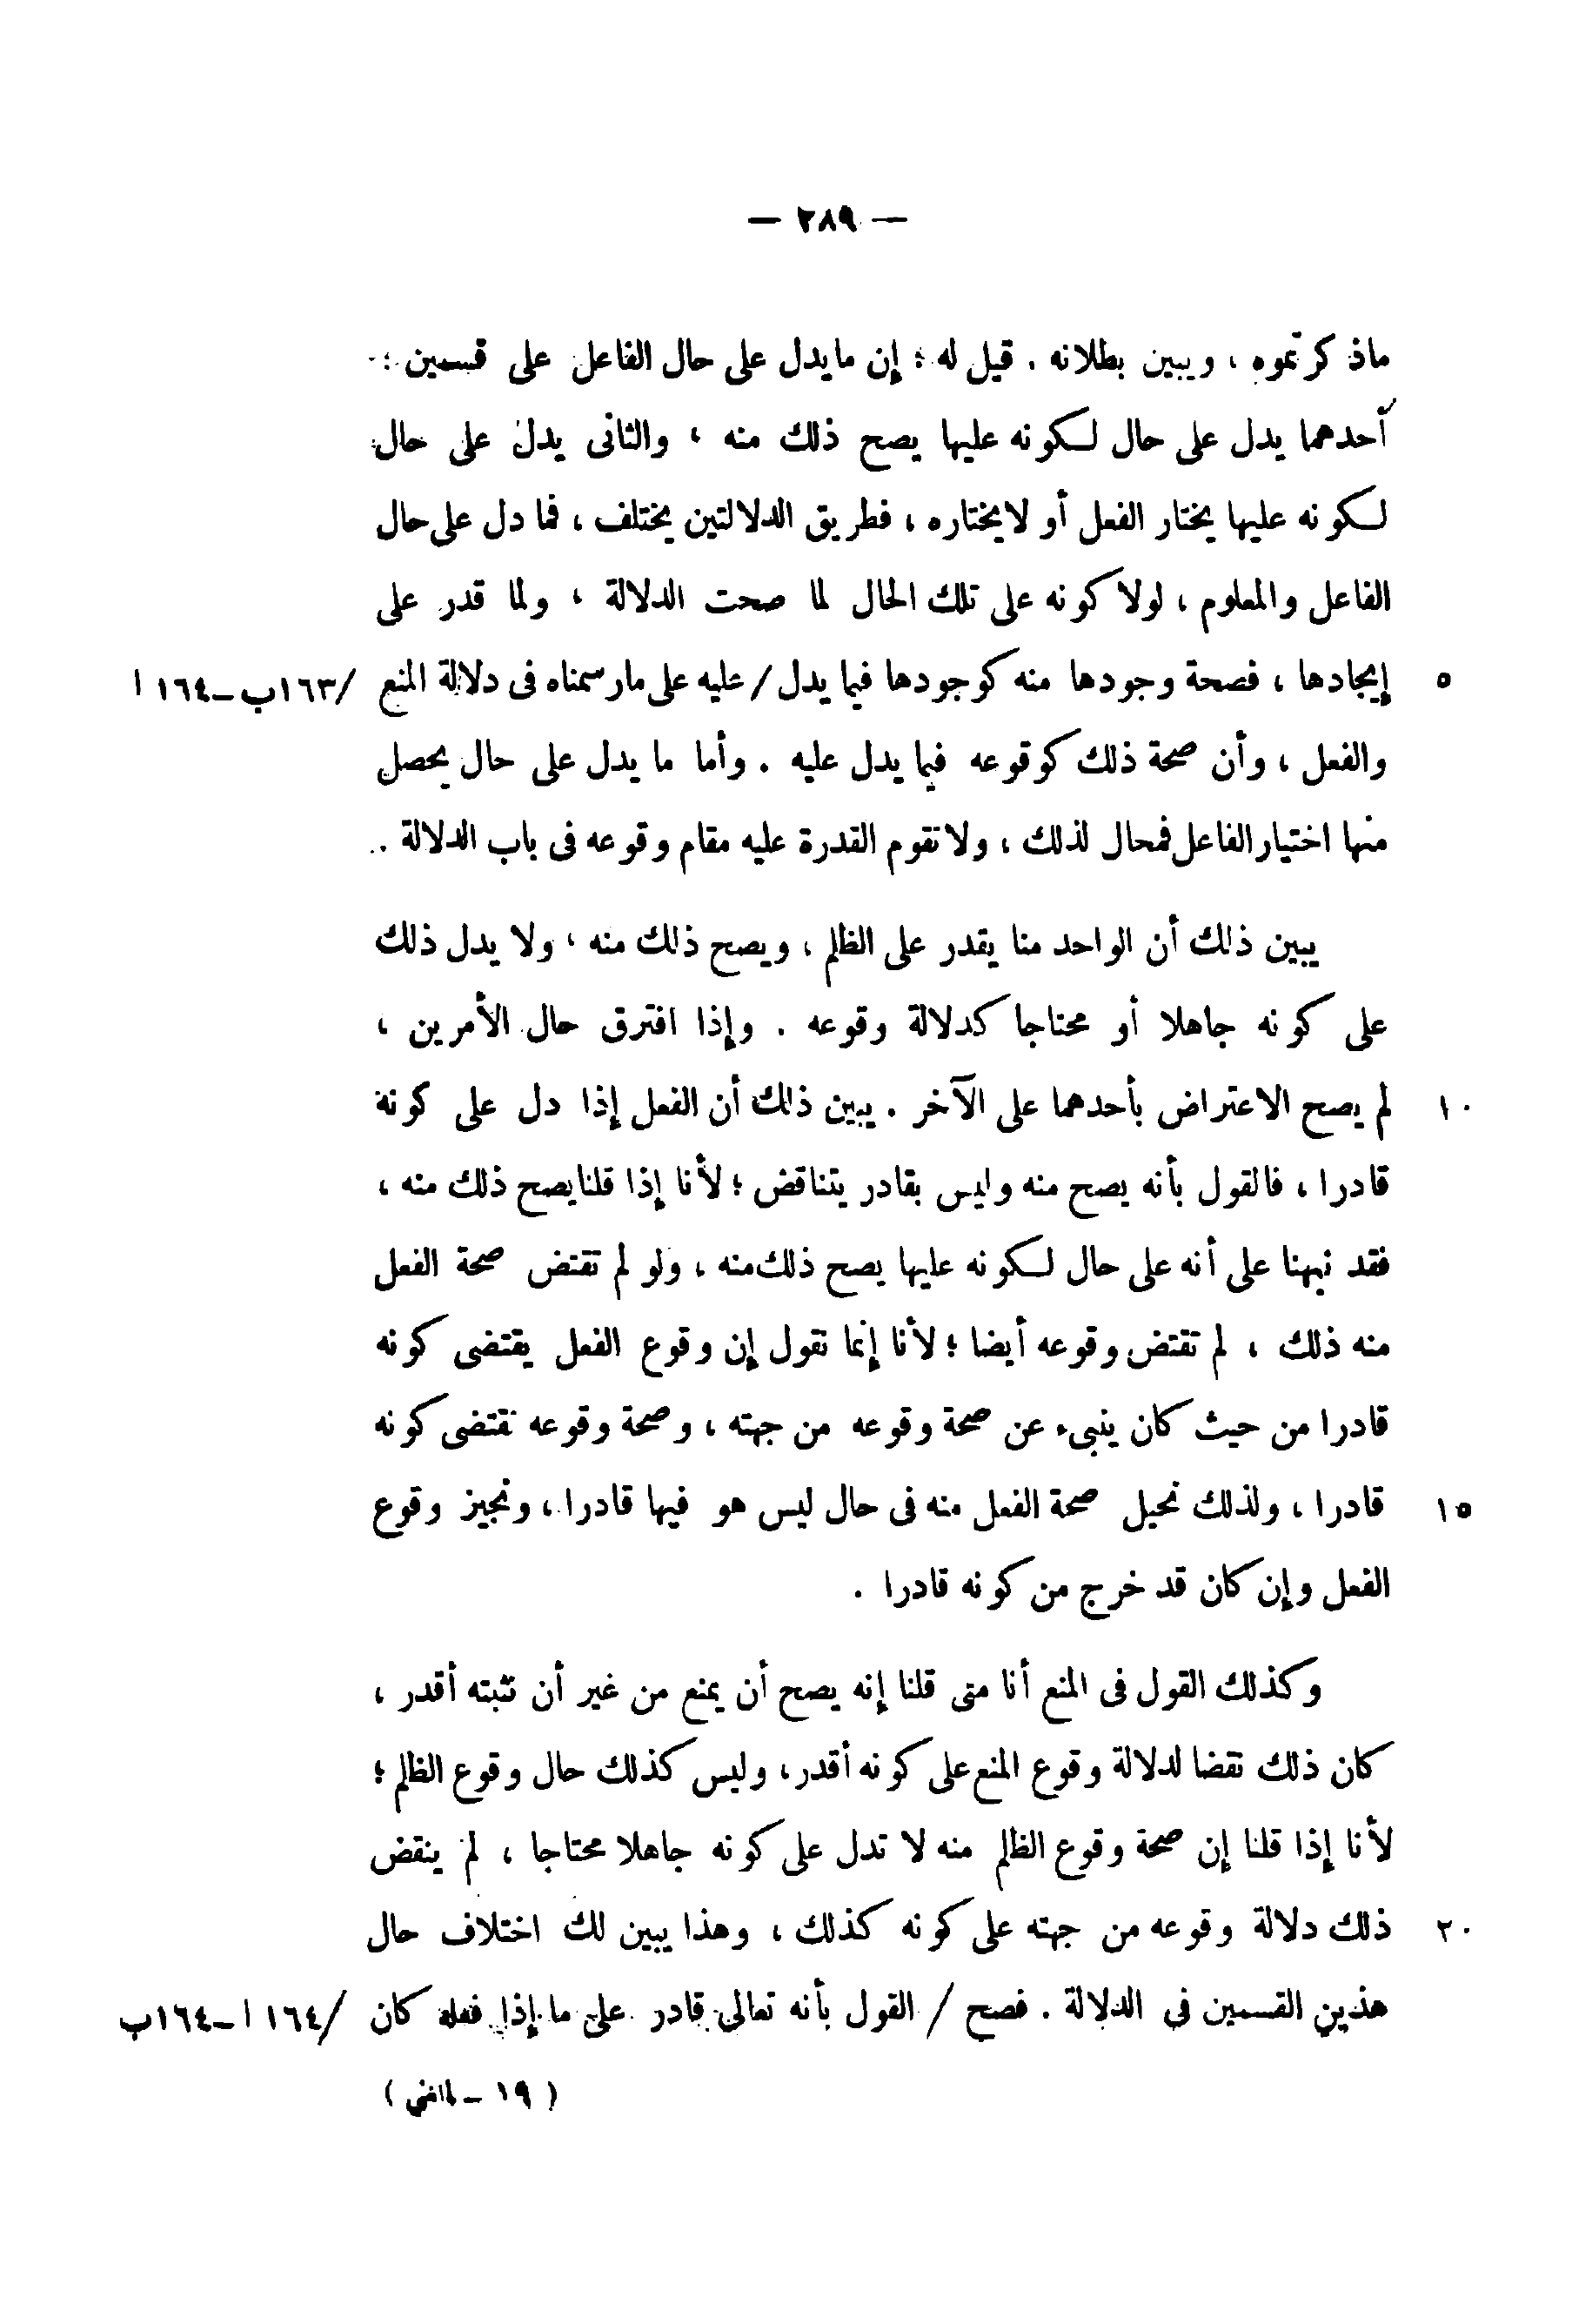 — ٢٨٩ —
ماذكرتموه ، ويبين بطلانه . قيل له : إن مايدل على حال الفاعل على قسمين :
أحدهما يدل على حال لكونه عليها يصح ذلك منه ، والثانى يدل على حال
لكونه عليها يختار الفعل أو لايختاره ، فطريق الدلالتين يختلف ، فما دل على حال
الفاعل والمعلوم ، لولا كونه على تلك الحال لما صحت الدلالة ، ولما قدر على
٥ إيجادها ، فصحة وجودها منه كوجودها فيما يدل / عليه على مارسمناه فى دلالة المنع /١٦٣ب_١٦٤ ا
والفعل ، وأن صحة ذلك كوقوعه فيما يدل عليه . وأما ما يدل على حال يحصل
منها اختيار الفاعل فمحال لذلك ، ولا تقوم القدرة عليه مقام وقوعه فى باب الدلالة .
يبين ذلك أن الواحد منا يقدر على الظلم ، ويصح ذلك منه ، ولا يدل ذلك
على كونه جاهلا أو محتاجا كدلالة وقوعه . وإذا افترق حال الأمرين ،
١٠ لم يصح الاعتراض بأحدهما على الآخر . يبين ذلك أن الفعل إذا دل على كونه
قادرا ، فالقول بأنه يصح منه وليس بقادر يتناقض ؛ لأنا إذا قلنا يصح ذلك منه ،
فقد نبهنا على أنه على حال لكونه عليها يصح ذلك منه ، ولو لم تقتض صحة الفعل
منه ذلك ، لم تقتض وقوعه أيضا ؛ لأنا إنما نقول إن وقوع الفعل يقتضى كونه
قادرا من حيث كان ينبىء عن صحة وقوعه من جهته ، وصحة وقوعه تقتضى كونه
١٥ قادرا ، ولذلك نحيل صحة الفعل منه فى حال ليس هو فيها قادرا ، ونجيز وقوع
الفعل وإن كان قد خرج من كونه قادرا .
وكذلك القول فى المنع أنا متى قلنا إنه يصح أن يمنع من غير أن نثبته أقدر ،
كان ذلك نقضا لدلالة وقوع المنع على كونه أقدر ، وليس كذلك حال وقوع الظلم ؛
لأنا إذا قلنا إن صحة وقوع الظلم منه لا تدل على كونه جاهلا محتاجا ، لم ينقض
٢٠ ذلك دلالة وقوعه من جهته على كونه كذلك ، وهذا يبين لك اختلاف حال
هذين القسمين فى الدلالة . فصح / القول بأنه تعالى قادر على ما إذا فعله كان /١٦٤ ا_١٦٤ب
( ١٩ _ المغني )